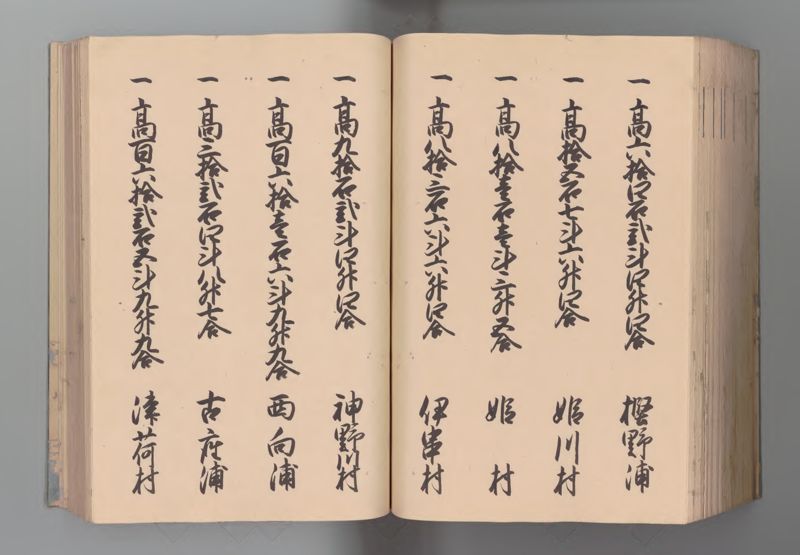 一高六拾四石弐斗四升四合 樫野浦
一高拾五石七斗六升四合 姫川村
一高八拾壱石壱斗三升五合 姫村
一高八拾三石六斗六升四合 伊串村
一高九拾石弐斗四升四合 神野川村
一高百六拾壱石六斗九升九合 西向浦
一高三拾弐石四斗八升七合 古座浦
一高百六拾弐石五斗九升九合 津荷村